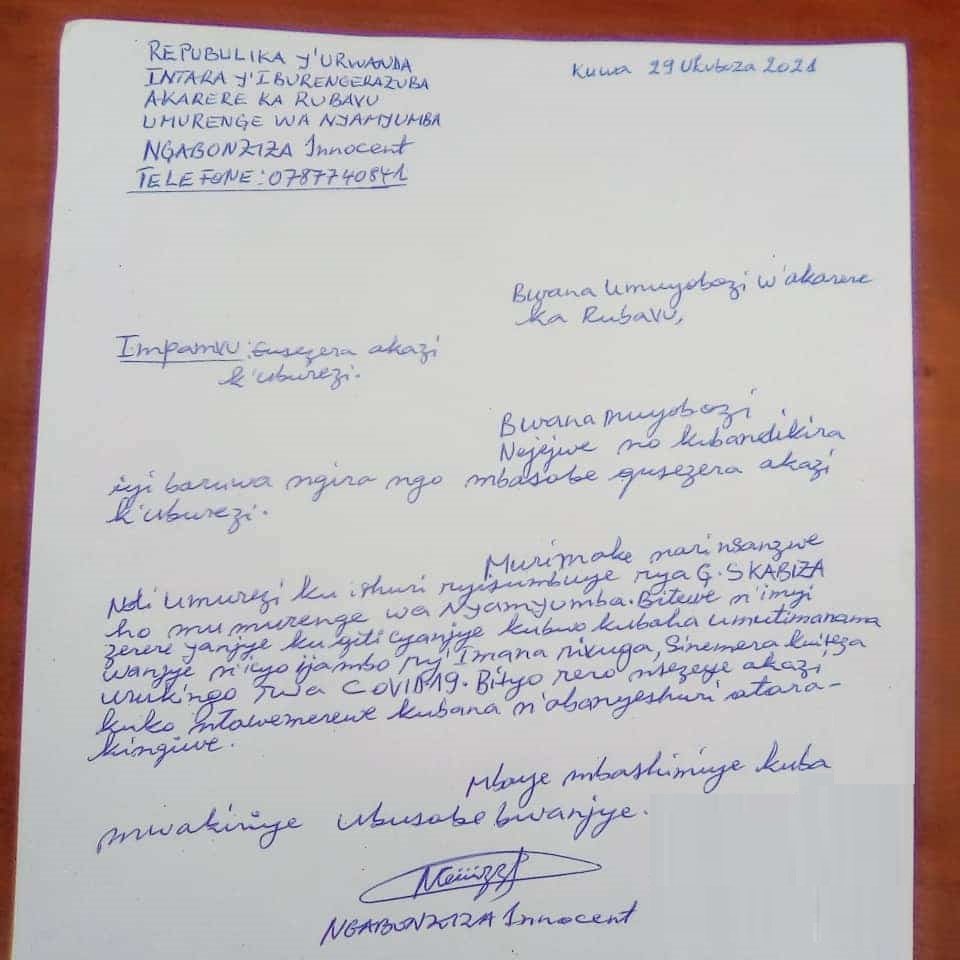 REPUBULIKA Y'URWANDA
INTARA Y'IBURENGERAZUBA
AKARERE KA RUBAVU
UMURENGE WA NYAMYUMBA
NGABONZIZA Innocent
TELEFONE: 0787740841
Kuwa 29 Ukuboza 2021
Bwana Umuyobozi w'akarere
ka Rubavu,
Impamvu: Gusezera akazi
k'uburezi.
Bwana muyobozi
Nejejwe no kubandikira
iyi baruwa ngira ngo mbasabe gusezera akazi
k'uburezi.
Murimake narinsanzwe
Ndi Umurezi ku ishuri ryisumbuye rya G.S KABIZA
ho mu murenge wa Nyamyumba. Bitewe n'imyi
zerere yanjye ku giti cyanjye kubwo kubaha umutimanama
wanjye n'icyo ijambo ry'Imana rivuga, Sinemera kwiteza
urukingo rwa COVID19. Bityo rero nsezeye akazi
kuko ntawemerewe kubana n'abanyeshuri atara-
kingiwe.
Mbaye mbashimiye kuba
mwakiriye ubusabe bwanjye.
NGABONZIZA Innocent